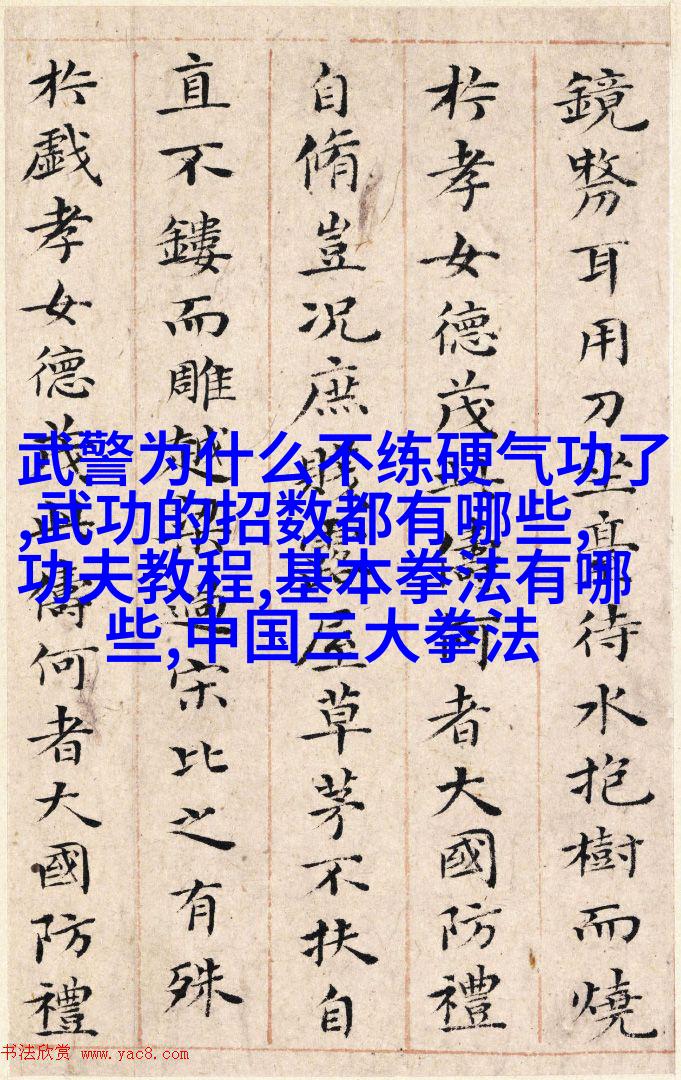 鏡剺耳用刀坐臺待水抱樹而燒
扵孝女德茂此儔何者大國防禮
自脩豈况庶賤露屋草茅不扶自
直不鏤而雕越梁過宋比之有殊
扵戯孝女德茂此儔何者大國防禮
武警为什么不练硬气功了
,武功的招数都有哪些,
功夫教程,基本拳法有哪
些,中国三大拳法
书法欣赏 www.yac8.com